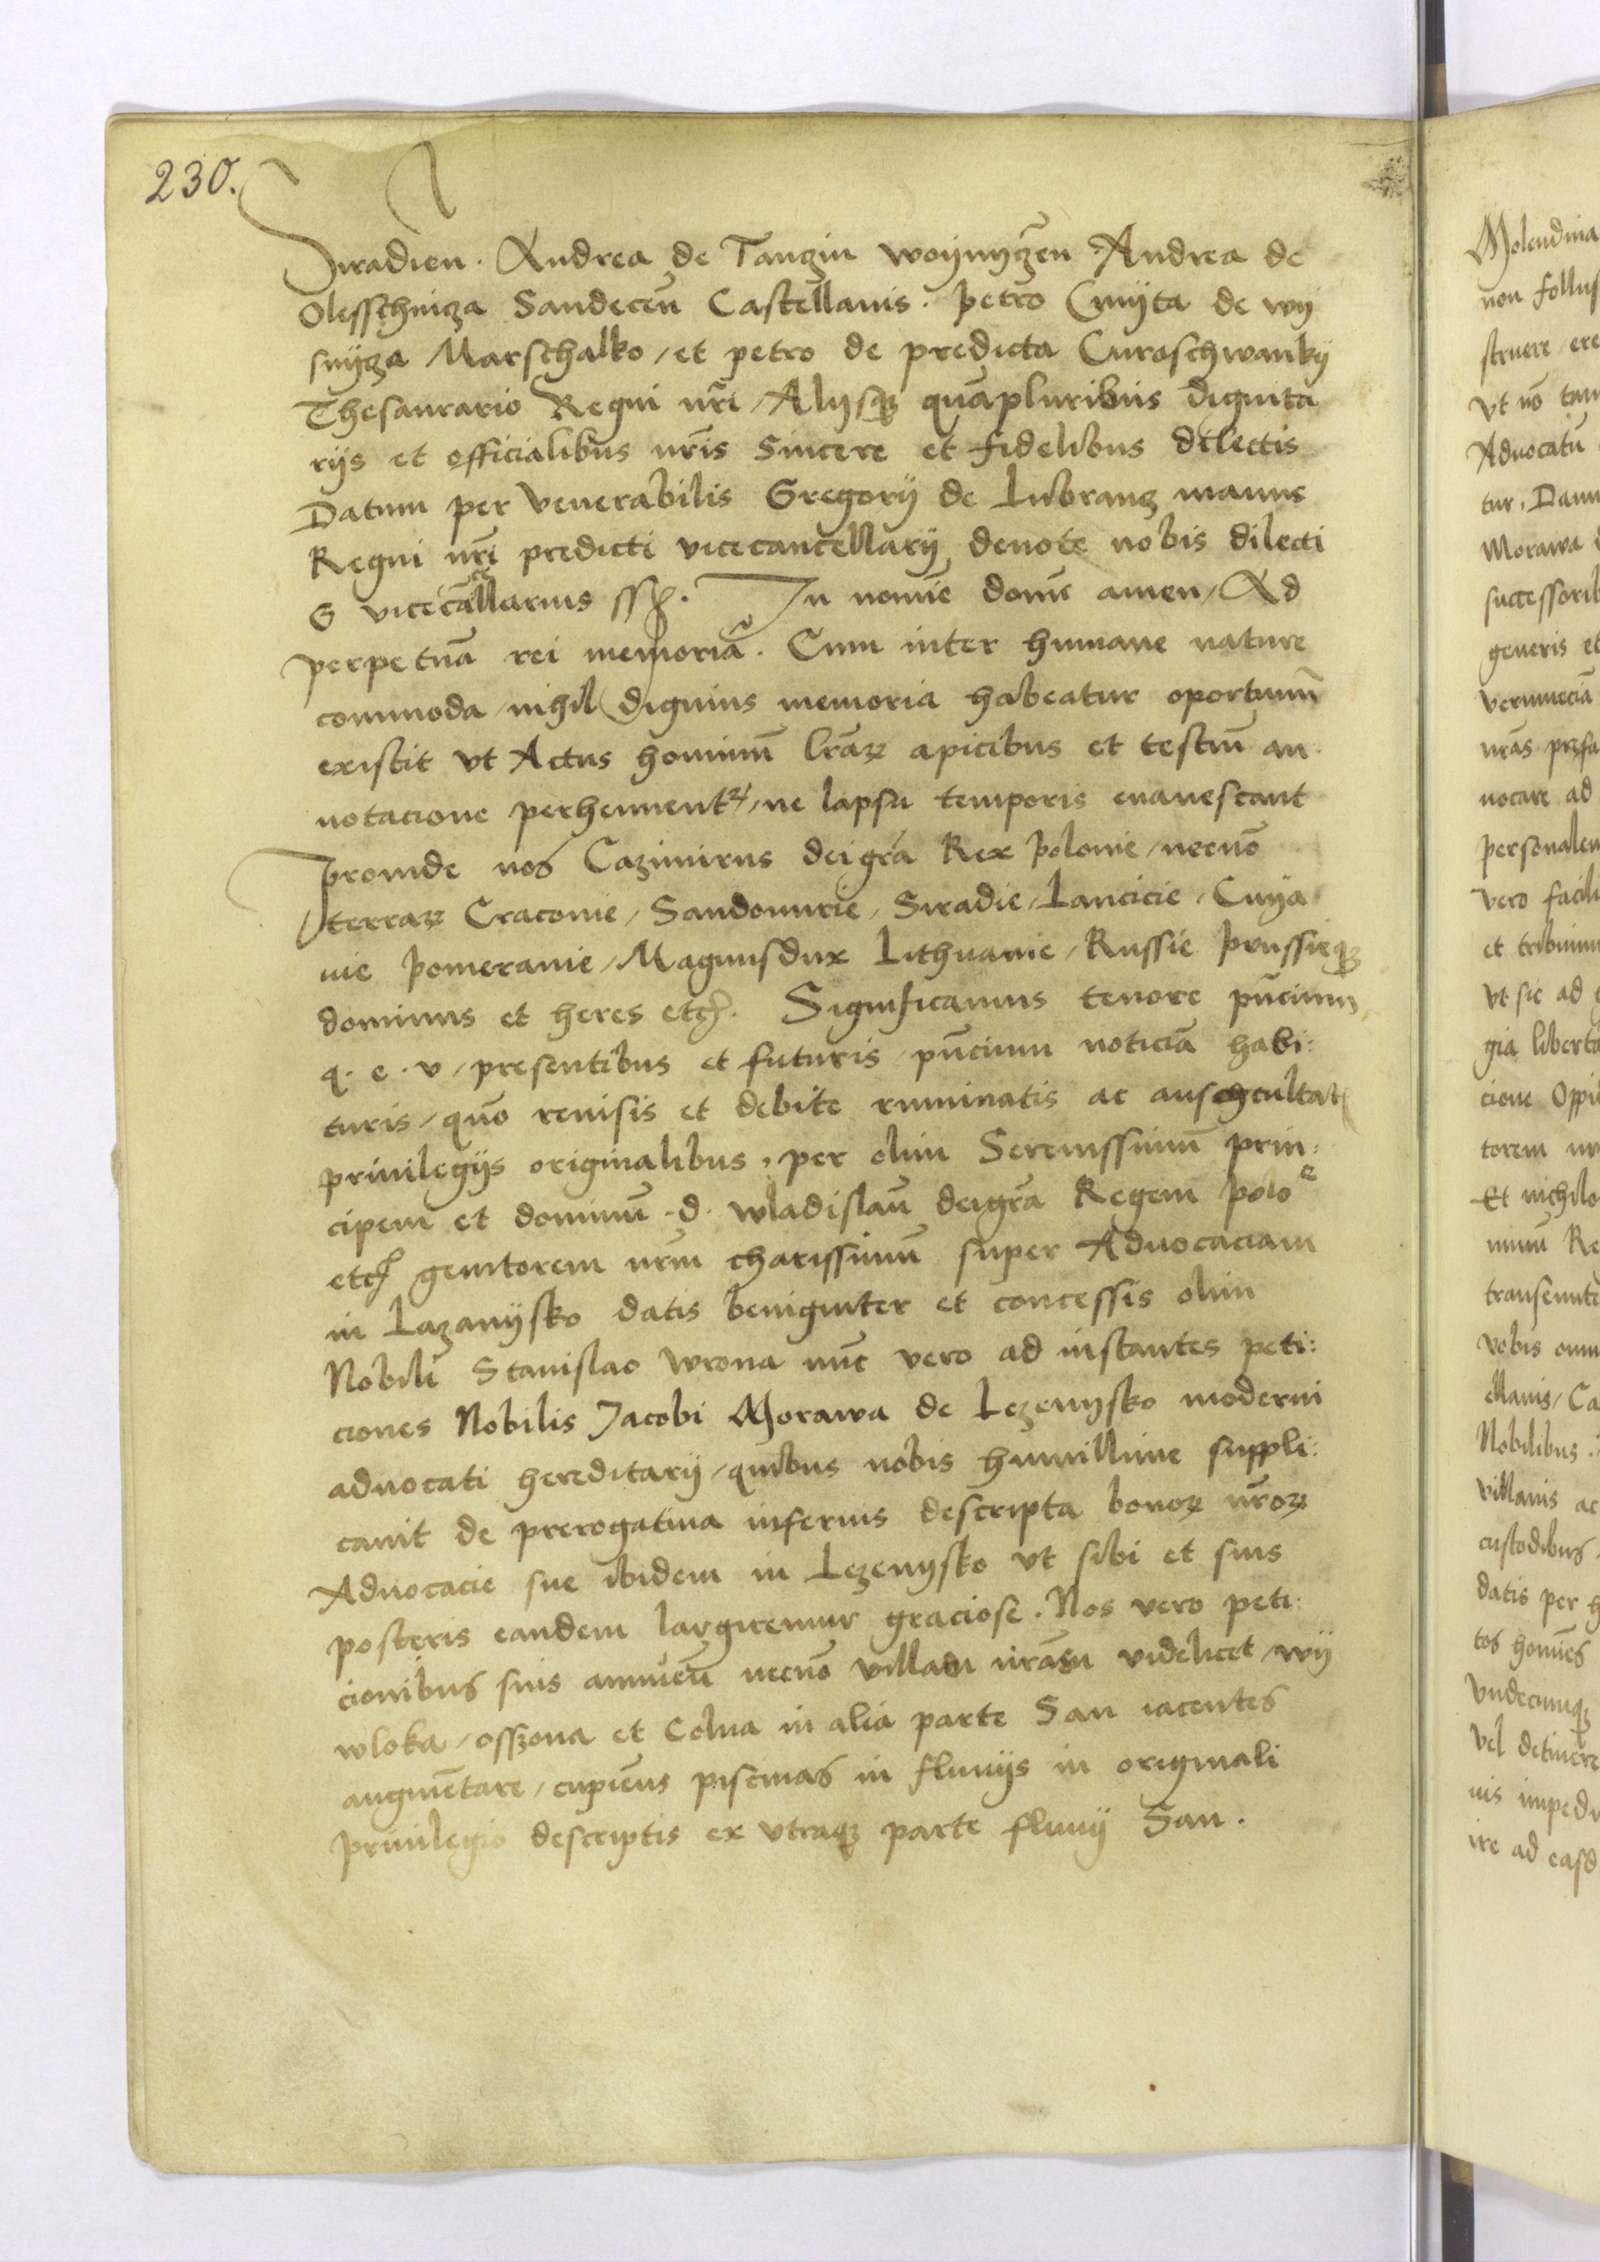 230.
Siradien. Andrea de Tanzin woynyczen̄ Andrea de
Olesschniza Sandecen̄ Castellanis. Petro Cmyta de wy
snyza Marschalko / et petro de predicta Curoschwanky
Thesaurario Regni nr̄i / Alijsqꝫ quā pluribus dignita
rijs et officialibus nr̄is Sincere et fidelibus dilectis
Datum per Venerabilis Gregorij de Lubranz manus
Regni nr̄i predicti vicecancellarij deuote nobis dilecti
G vicecācellarius sßp. In nomīe domī amen / Ad
perpetuā rei memoriā. Cum inter humane nature
commoda / nihil dignius memoria habeatur oportunū
existit vt Actus hominū lrāꝝ apicibus et testiū an
notacione perhennentꝛ / ne lapsu temporis euanescant
Proinde nos Cazimirus deigrā Rex Polonie / necnō
terraꝝ Craconie / Sandomirie / Siradie / Lancicie / Cuya
uie Pomeranie / Magnusdux Lithuanie / Russie Prussieqꝫ
dominus et heres etcꝭ. Significamus tenore pn̄cium
q. e. v / presentibus et futuris pn̄cium noticiā habi:
turis / quō reuisis et debite ruminatis ac auschcultatꝭ
priuilegijs originalibus, per olim Serenissimū prin:
cipem et dominū .d. wladislaū deigrā Regem Poloᵉ
etcꝭ genitorem nrm̄ charissimū super Aduocaciam
in Lazanysko datis benigniter et concessis olim
Nobili Stanislao Wrona nūc vero ad instantes peti:
ciones Nobilis Jacobi Morawa de Lezenysko moderni
aduocati hereditarij / quibus nobis humillime suppli:
cauit de prerogatiua inferius descripta bonoꝝ nr̄oꝝ
Aduocacie sue ibidem in Lezenysko vt sibi et suis
posteris eandem largiremur graciose. Nos vero peti:
cionibus suis annuēn̄ necnō villam nrām videlicet / wy
wloka / osszona et Colna in alia parte San iacentes
augmētare / cupiens piscinas in fluuijs in originali
priuilegio descriptis ex vtraqꝫ parte fluuij San.
Molendina
non follus
struere / ere
Vt nō tan
Aduocatū
tur. Dam
Morawa
successorib
generis et
nrās prefa
uocare ad
personalem
vero facili
vt sic ad
gia liberta
cione Oppi
torem nr
Et nichilo
minū Re
transeunte
Vobis omn
ellanis / Ca
Nobilibus.
villanis ac
custodibus
datis per h
tos homīes
Vndecunqꝫ
Vel detinere
uis impedi
ire ad easd